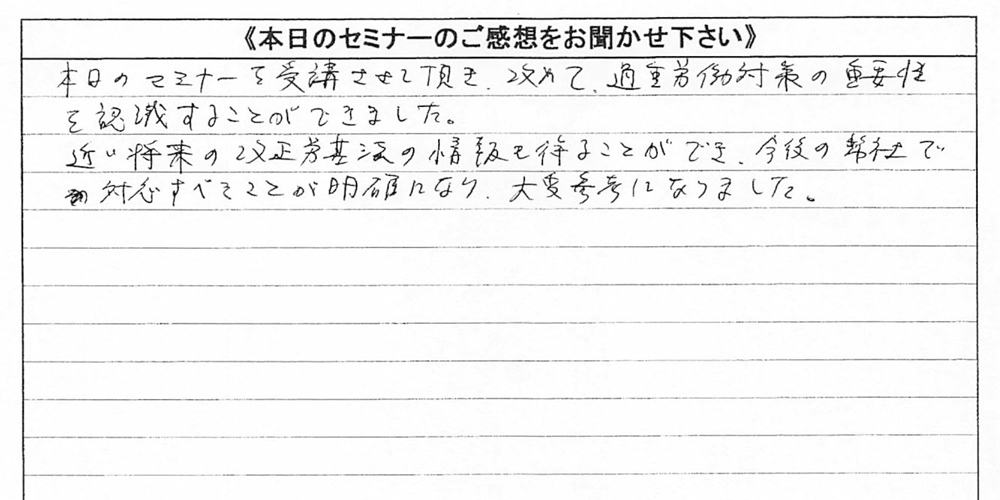 《本日のセミナーのご感想をお聞かせ下さい》
本日のセミナーを受講させて頂き、改めて、過重労働対策の重要性
を認識することができました。
近い将来の改正労基法の情報も得ることができ、今後の弊社で
対応すべきことが明確になり、大変参考になりました。